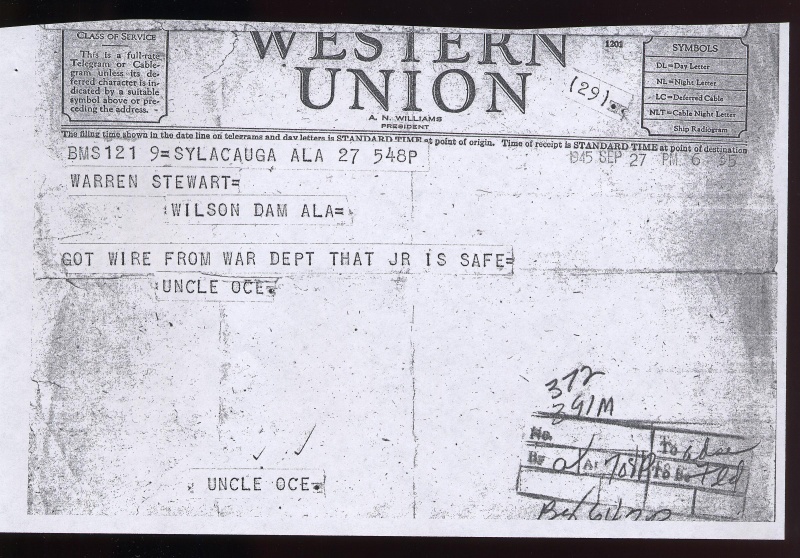 CLASS OF SERVICE
This is a full-rate
Telegram or Cable-
gram unless its de-
ferred character is in-
dicated by a suitable
symbol above or pre-
ceding the address.
WESTERN
UNION
A. N. WILLIAMS
PRESIDENT
1201
(29).
SYMBOLS
DL=Day Letter
NL=Night Letter
LC=Deferred Cable
NLT=Cable Night Letter
Ship Radiogram
The filing time shown in the date line on telegrams and day letters is STANDARD TIME at point of origin. Time of receipt is STANDARD TIME at point of destination
BMS121 9=SYLACAUGA ALA 27 548P
1945 SEP 27 PM 6
WARREN STEWART=
WILSON DAM ALA=
GOT WIRE FROM WAR DEPT THAT JR IS SAFE=
UNCLE OCE.
372
391M
No.
To
By
At
To Be
UNCLE OCE.